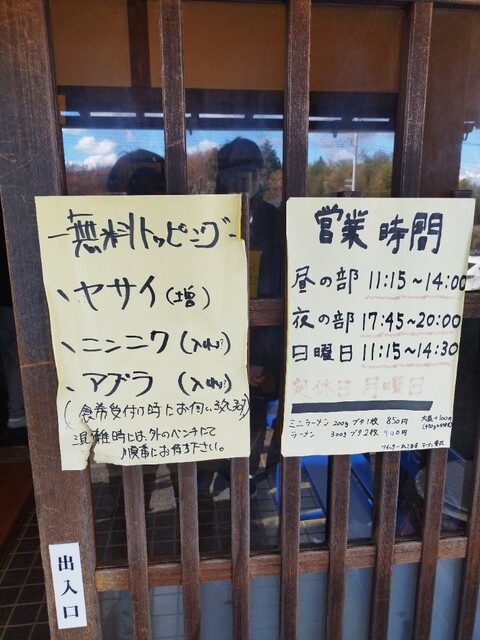 無料トッピング
ヤサイ(増)
ニンニク(入れ?)
アブラ(入れ?)
(食券受付の時にお伺い致し
混雑時には、外のベンチにて
順番にお待ち下さい。
営業時間
昼の部 11:15~14:00
夜の部 17:45~20:00
日曜日 11:15~14:30
定休日 月曜日
ミニラーメン 200g ブタ1枚 850円
ラーメン 300g ブタ2枚 900円
大盛+100円
出入口